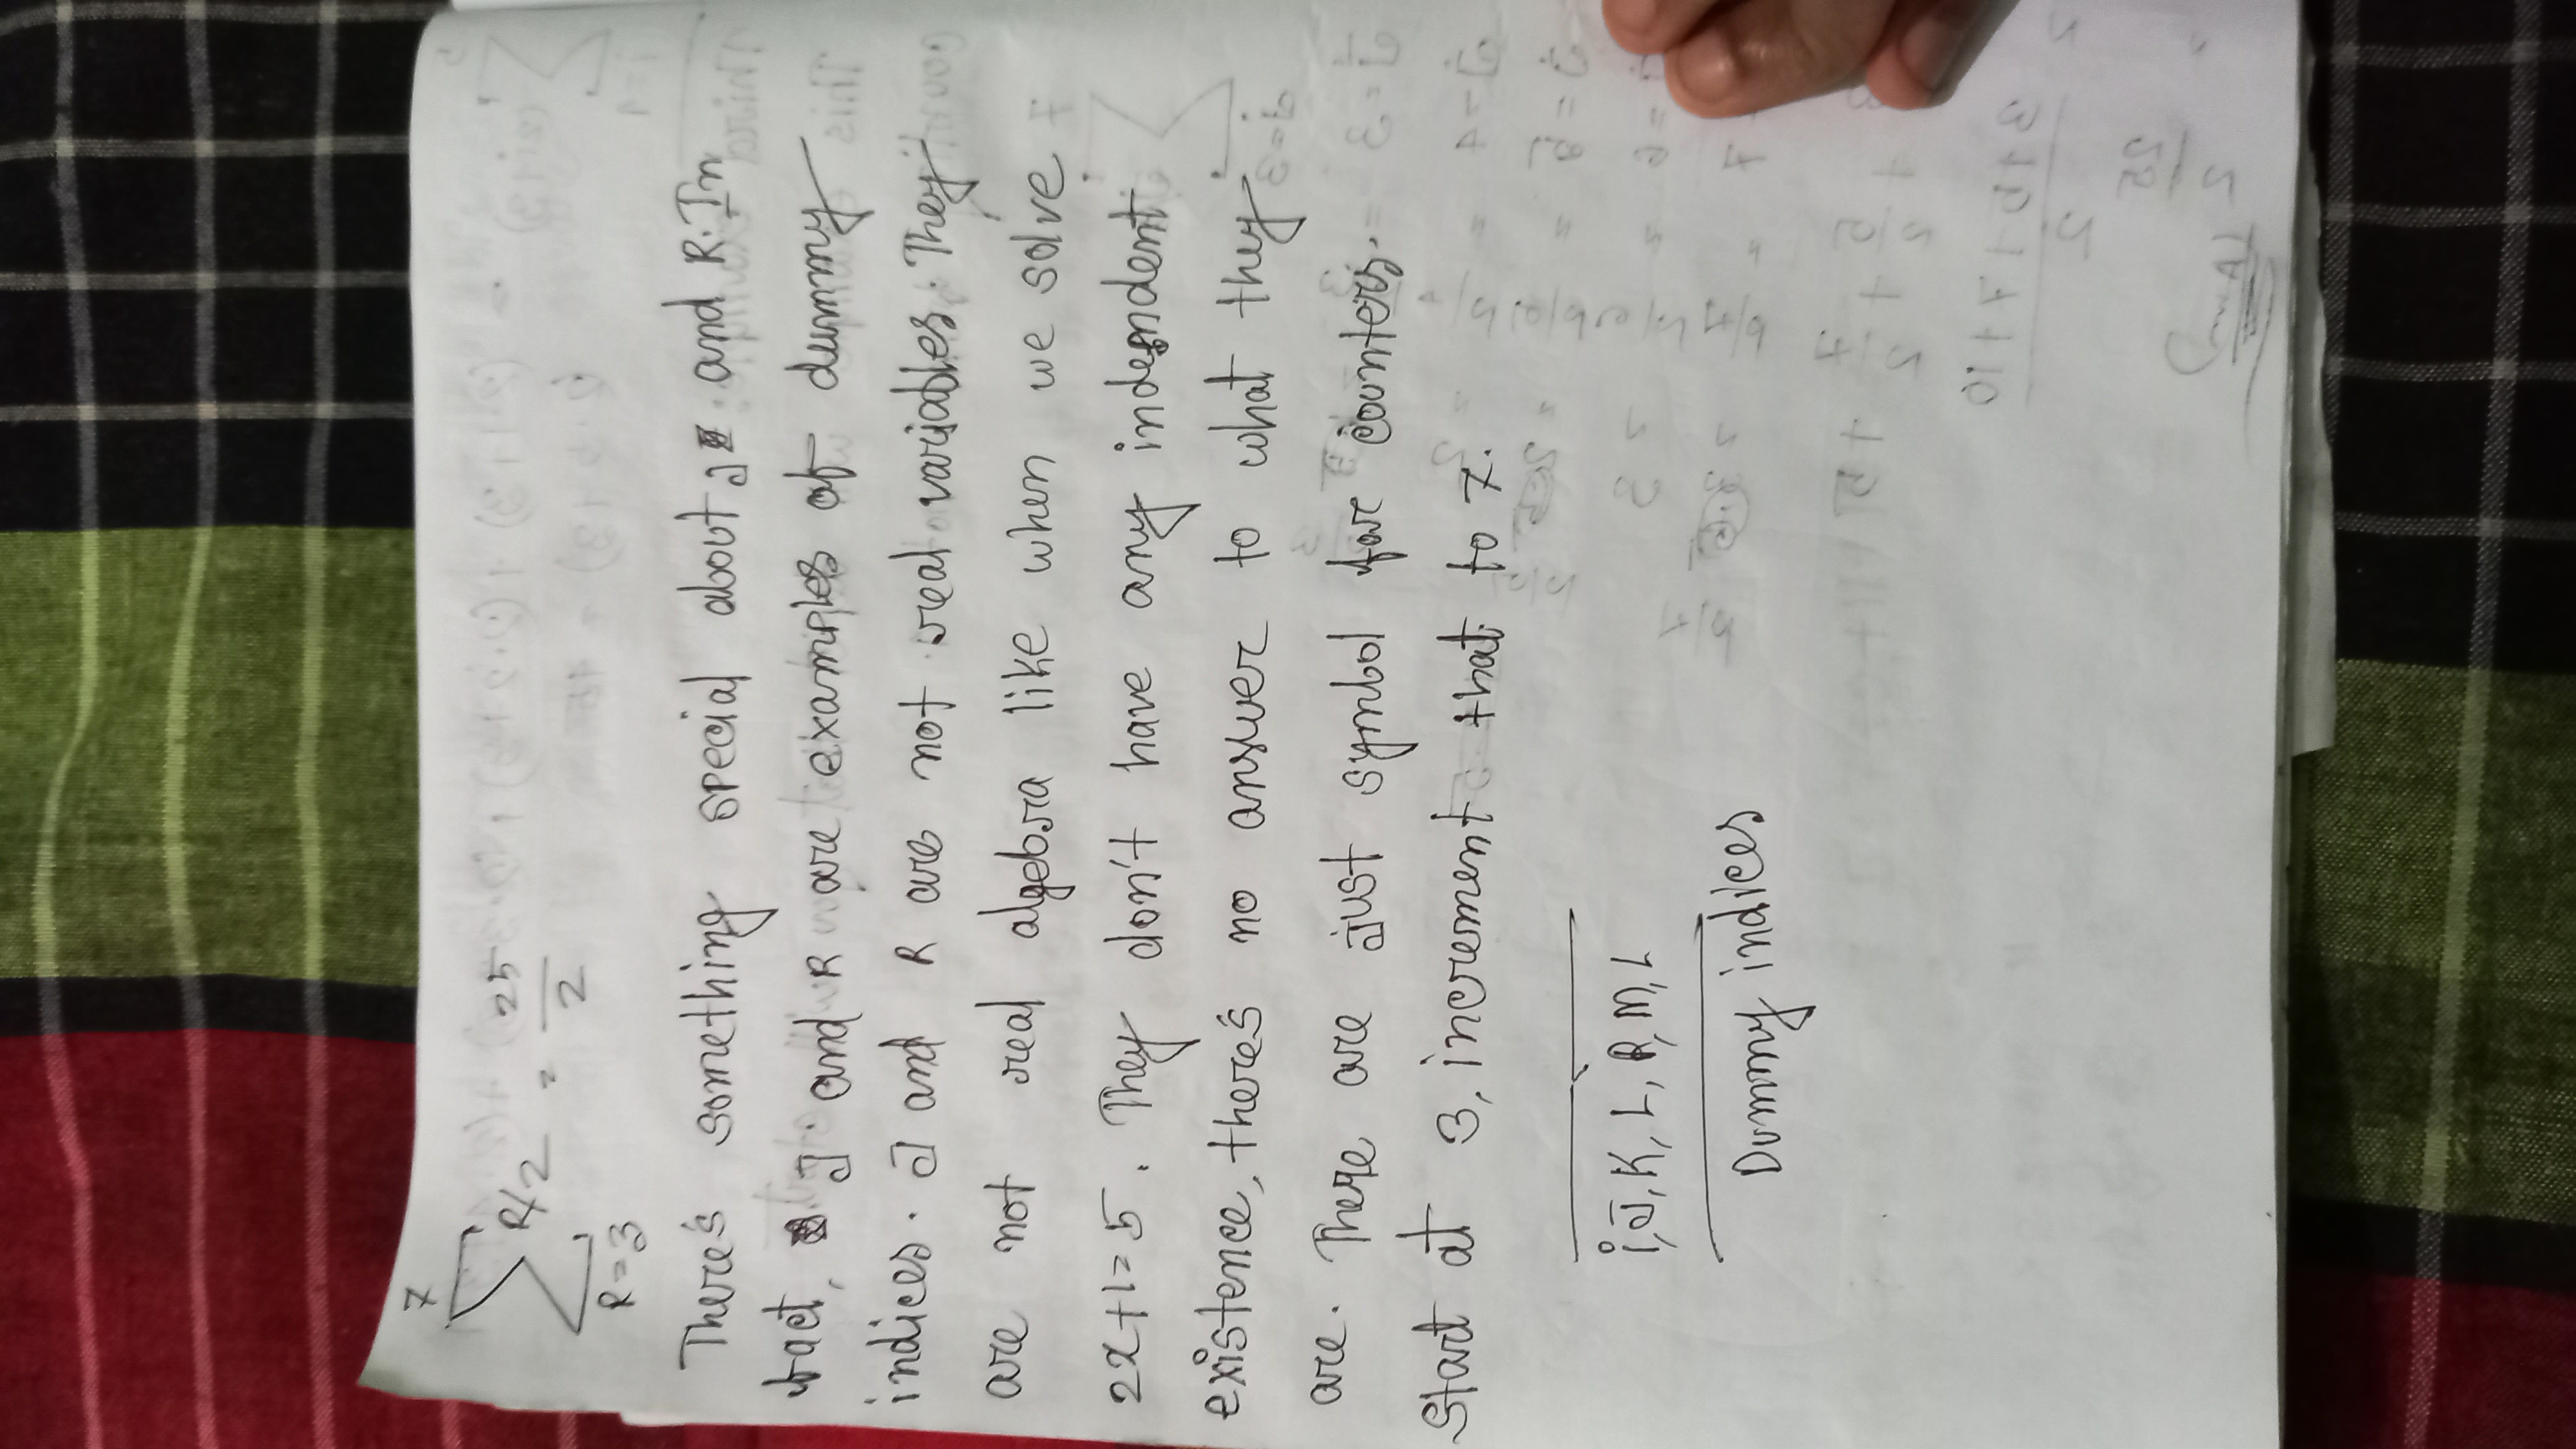 7
∑ R/2 = 25/2
R=3
There's something special about J and R. In
fact, J and R are examples of dummy
indices. J and R are not real variables. They
are not real algebra like when we solve
2x+1=5. They don't have any indepndent
existence, there's no answer to what they
are. There are just symbol for counters.
Start at 3, increment that to 7.
i, J, K, L, R, M, L
Dummy indices